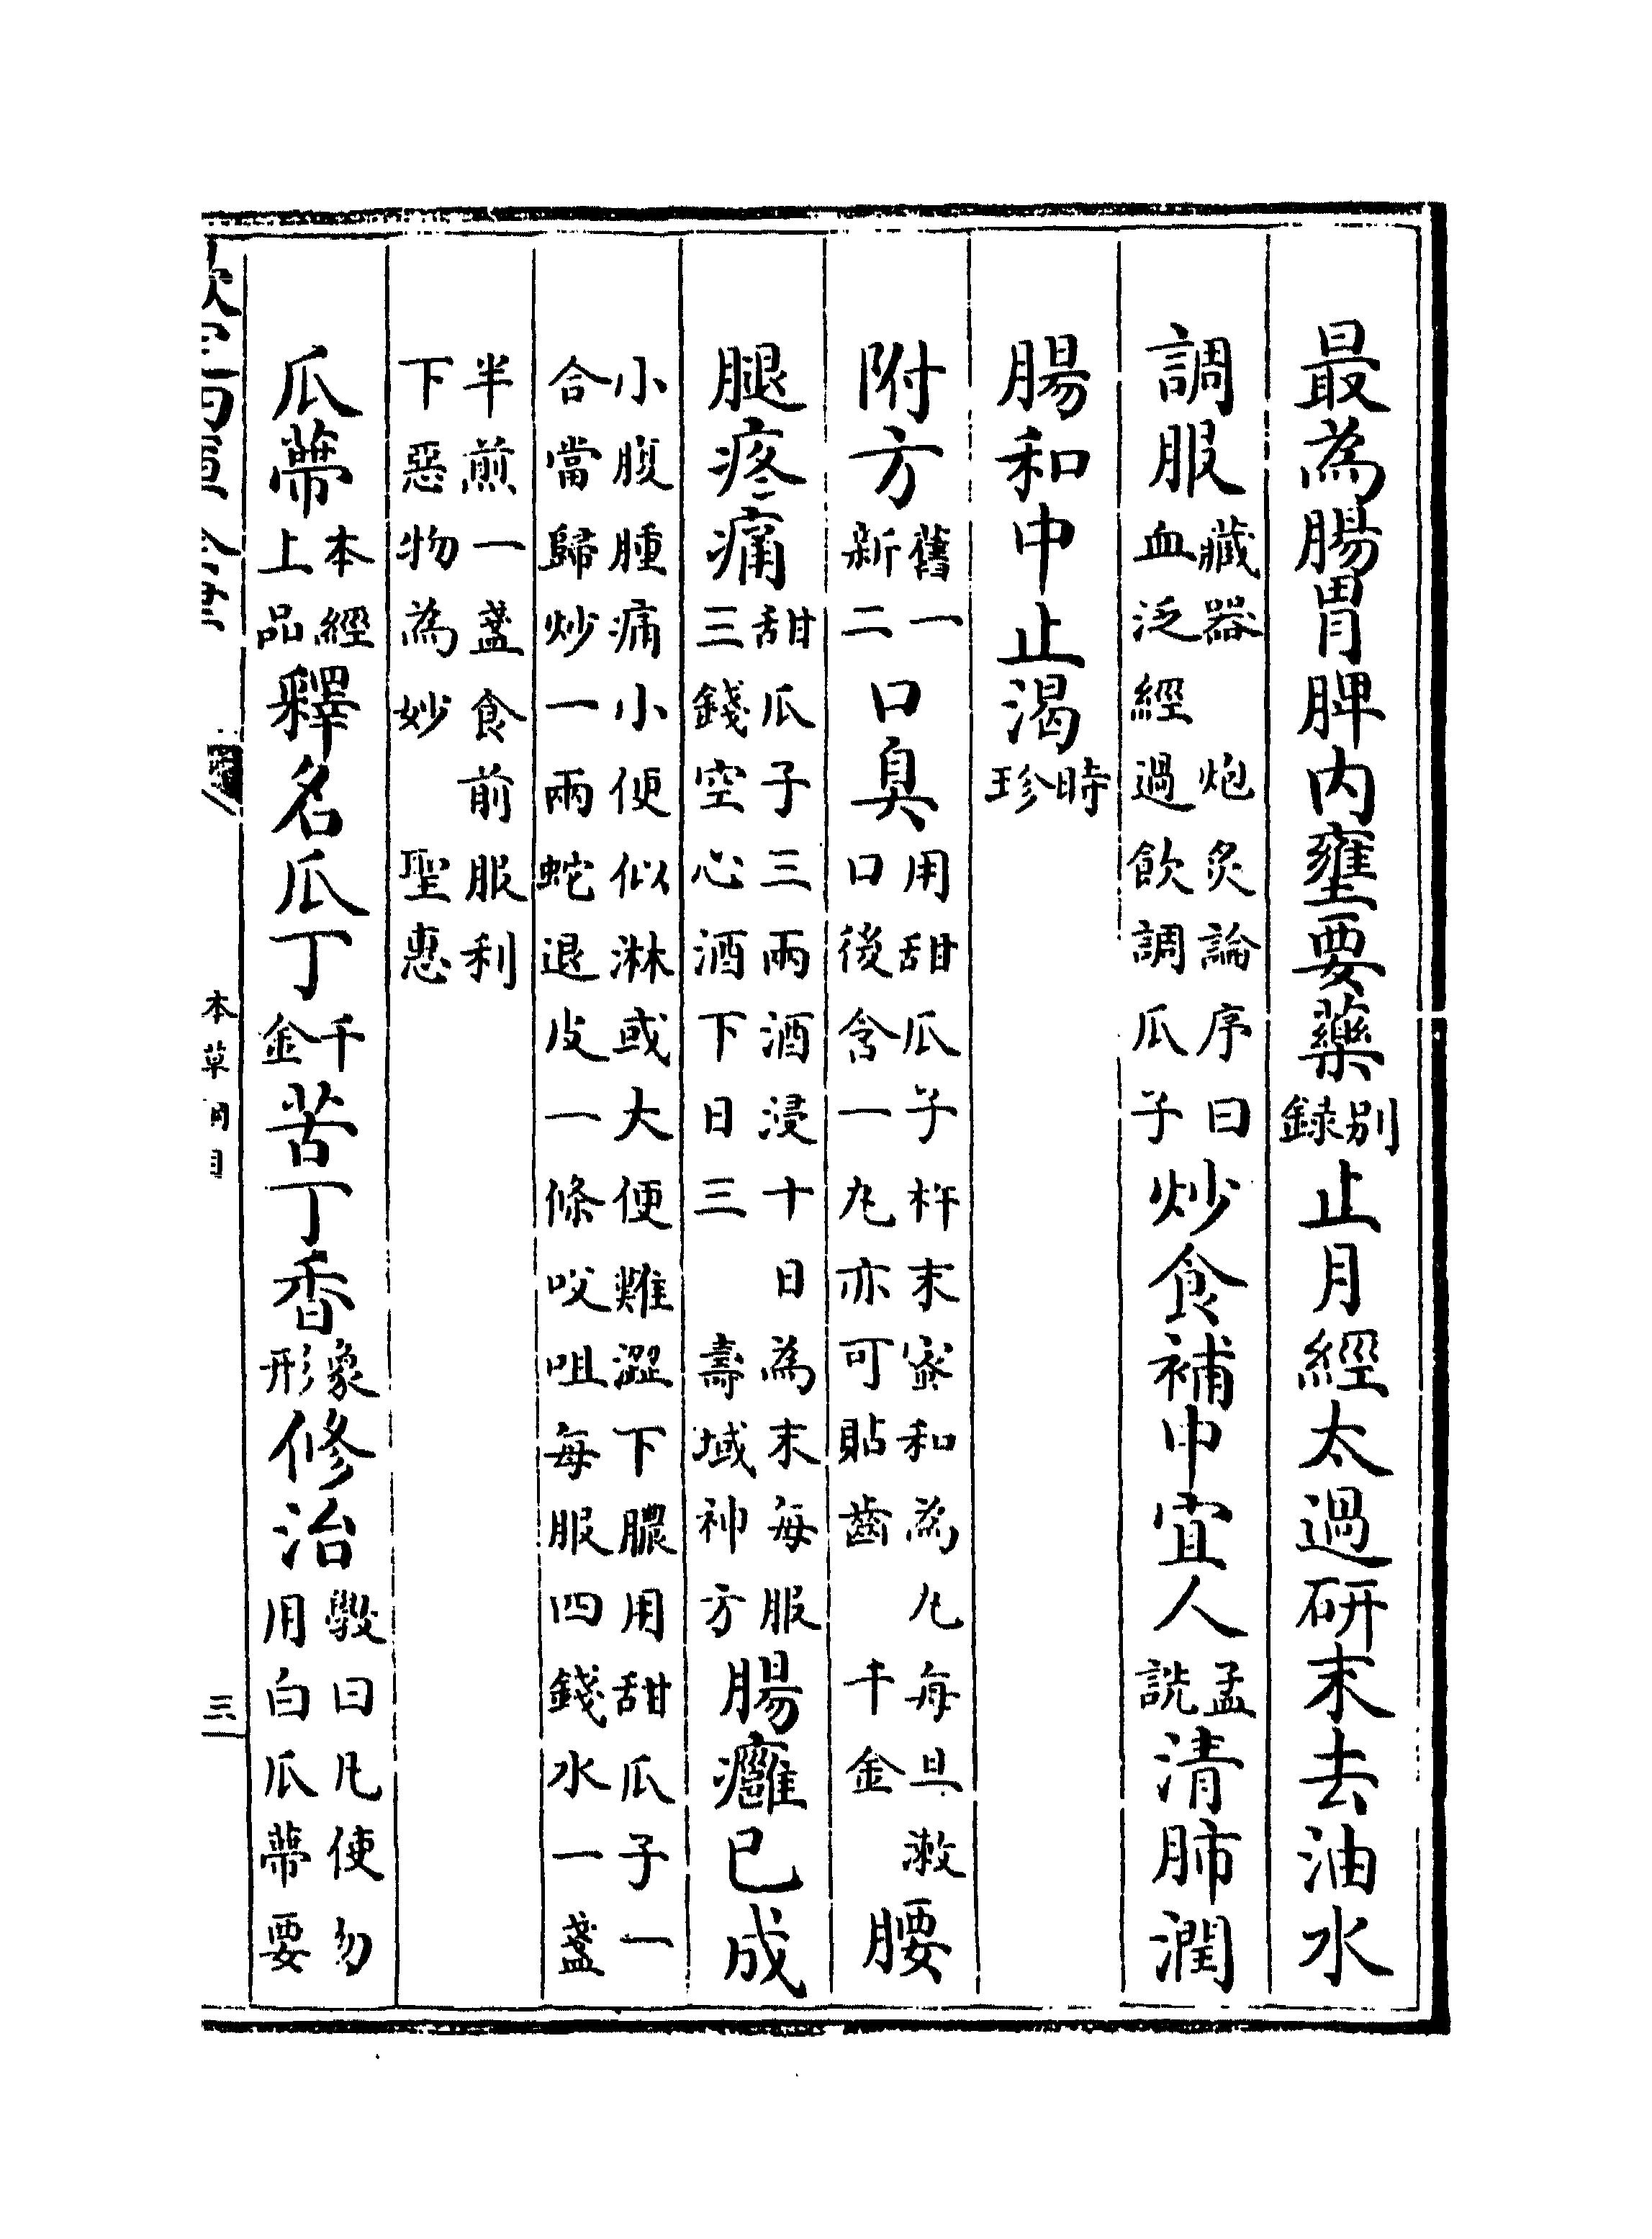 最為腸胃脾内壅要藥別録止月經太過研末去油水
調服藏器 炮炙論序曰血泛經過飲調瓜子炒食補中宜人孟詵清肺潤
腸和中止渴時珍
附方舊一新二口臭用甜瓜子杵末宻和為丸每旦漱口後含一丸亦可貼齒 千金腰
腿疼痛甜瓜子三兩酒浸十日為末每服三錢空心酒下日三 壽域神方腸癰已成
小腹腫痛小便似淋或大便難澀下膿用甜瓜子一合當歸炒一兩蛇退皮一條㕮咀每服四錢水一盞
半煎一盞食前服利下惡物為妙 聖惠
瓜蔕本經上品釋名瓜丁千金苦丁香象形修治斆曰凡使勿用白瓜蔕要
本草綱目
三